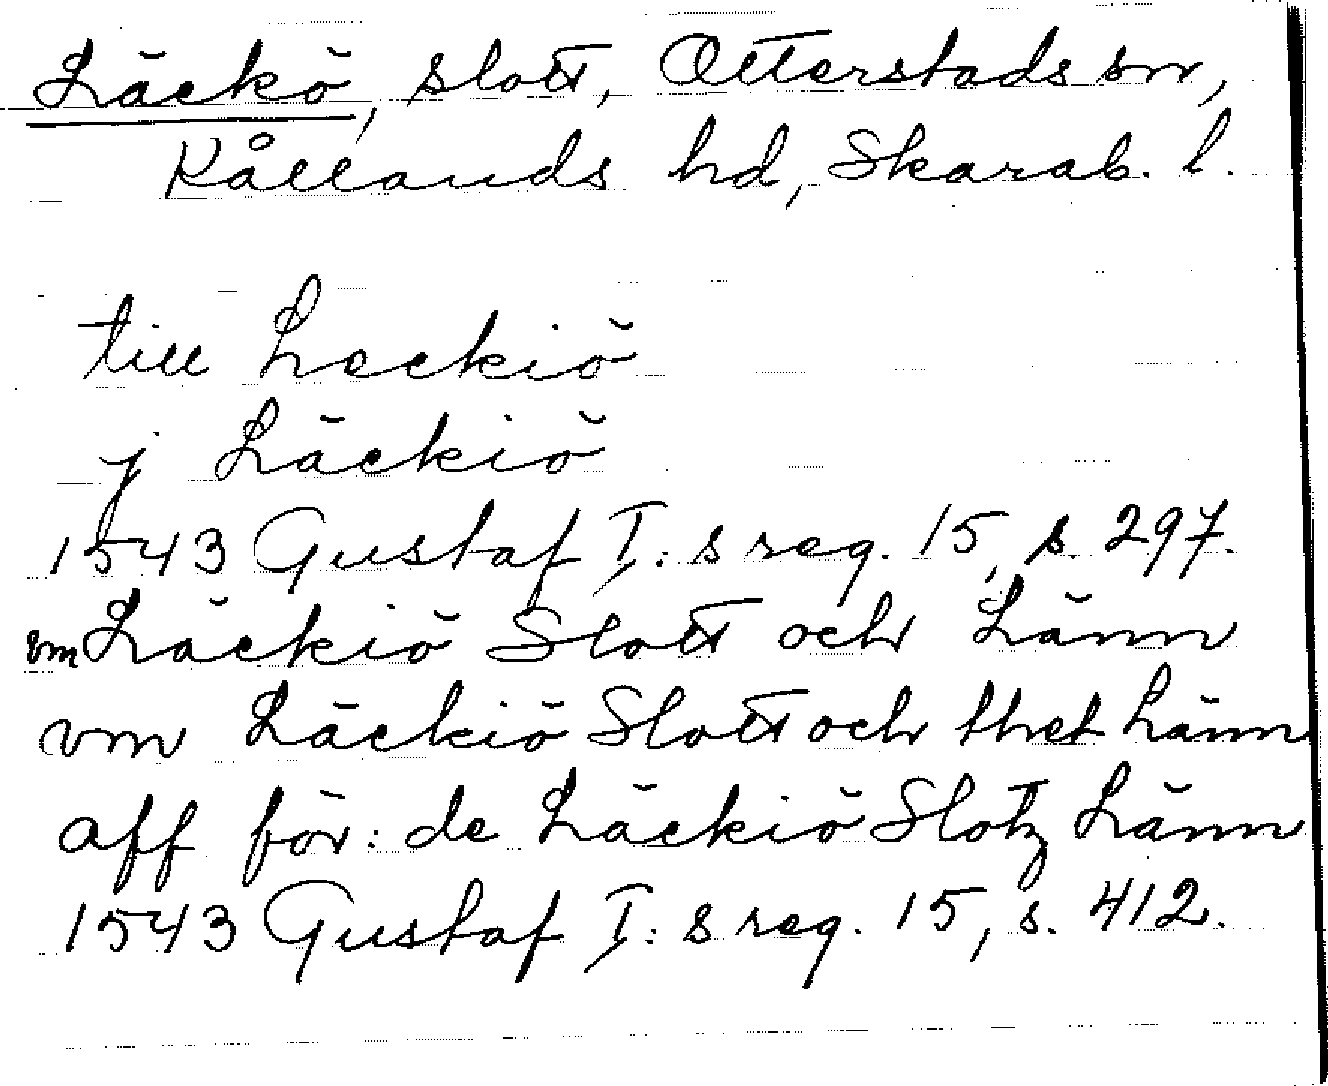 Läckö, slott, Otterstads sn,
Kållands hd, Skarab. l.
till Leckiö
j Läckiö
1543 Gustaf I:s reg. 15, s. 297.
vm Läckiö Slott och Länn
vm Läckiö Slott och thet Länn
aff för: de Läckiö Slotz Länn
1543 Gustaf I:s reg. 15, s. 412.